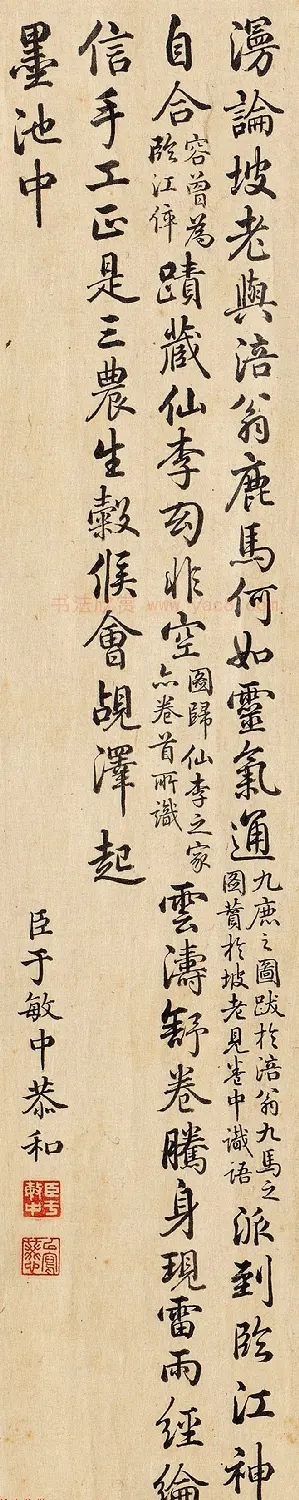 漫論坡老與涪翁鹿馬何如靈氣通九鹿之圖跋於涪翁九馬之圖贊於坡老見卷中識語派到臨江神
自合容曾為臨江倅蹟藏仙李囪非空圖歸仙李之家亦卷首所識雲濤舒卷騰身現雷雨經綸
信手工正是三農生穀候會覘澤起
墨池中
臣于敏中恭和
臣于敏中